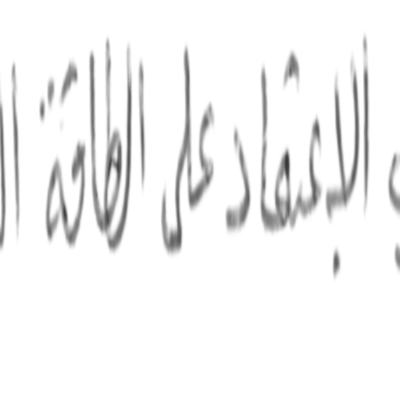 الإعتماد على الطاقة